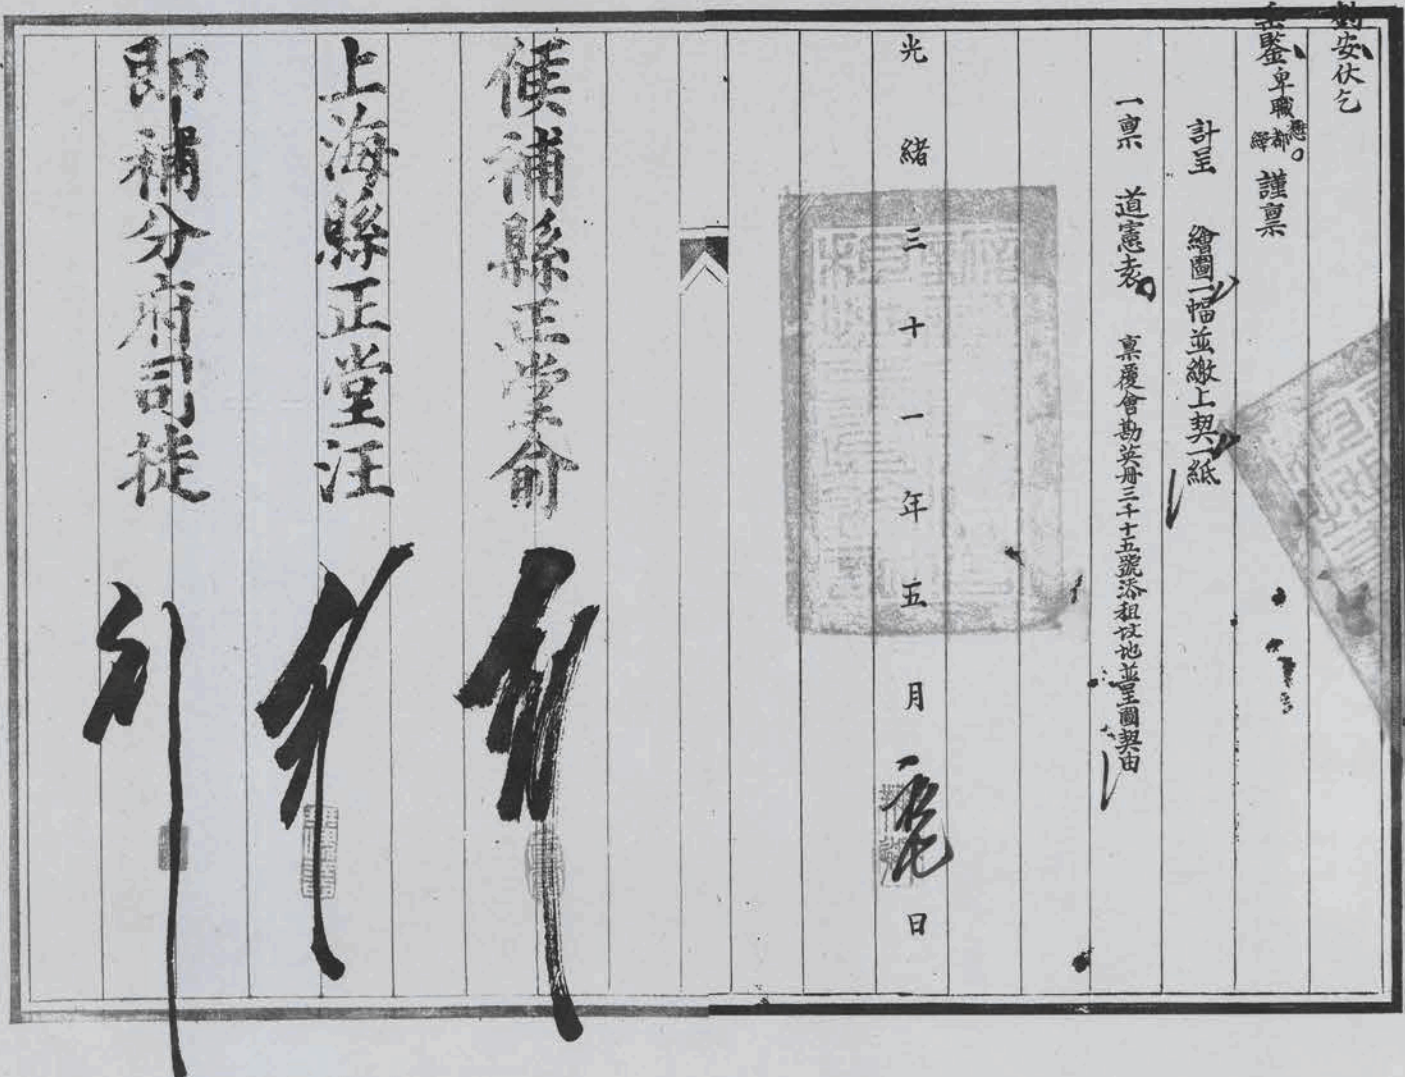 勛安伏乞
垂鑒卑職懋都繹謹稟
計呈 繪圖一幅並繳上契一紙
一稟 道憲袁 稟覆會勘英册三千十五號添租坟地並呈圖契由
光緒三十一年五月 日
候補縣正堂俞
上海縣正堂汪
即補分府司徒